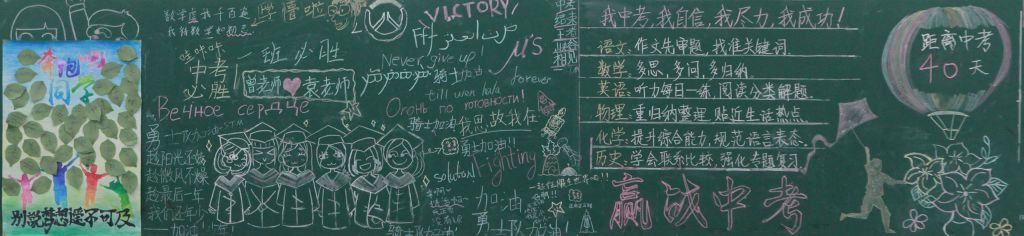 奔跑吧
同学
别说梦想遥不可及
数学虐我千百遍
我待数学如初恋
学霸啦
哔咔咔
中考
必胜
二班必胜
曾老师❤袁老师
Вечное сердце
VICTORY!
Never give up
骑士加油
μ's
forever
Огонь по готовности!
骑士加油
我思故我在
勇士加油!!
solution
Fighting
加油
勇士队加油!
骑士队加油!
越阳光不燥
趁微风不燥
在最后一年
我们还年少
我中考,我自信,我尽力,我成功!
语文:作文先审题,找准关键词
数学:多思,多问,多归纳
英语:听力每日一练,阅读分类解题
物理:重归纳整理,贴近生活热点
化学:提升综合能力,规范语言表态
历史:学会联系比较,强化专题复习
赢战中考
距离中考
40天